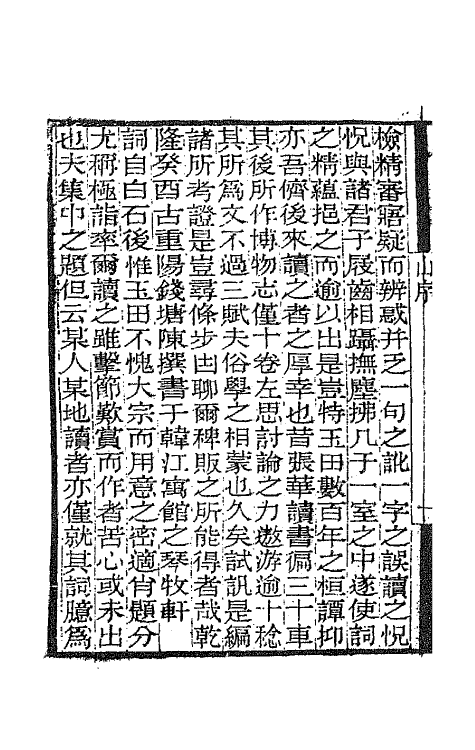 檢精審寤疑而辨惑并乏一句之訛一字之誤讀之怳
怳與諸君子屐齒相躡撫塵拂几于一室之中遂使詞
之精蘊挹之而逾以出是豈特玉田數百年之桓譚抑
亦吾儕後來讀之者之厚幸也昔張華讀書徧三十車
其後所作博物志僅十卷左思討論之力遨游逾十稔
其所爲文不過三賦夫俗學之相蒙也久矣試訊是編
諸所考證是豈尋條步出聊爾稗販之所能得者哉乾
隆癸酉古重陽錢塘陳撰書于韓江寓館之琴牧軒
詞自白石後惟玉田不愧大宗而用意之密適肖題分
尤稱極詣率爾讀之雖擊節歎賞而作者苦心或未出
也夫集中之題但云某人某地讀者亦僅就其詞臆爲
山序